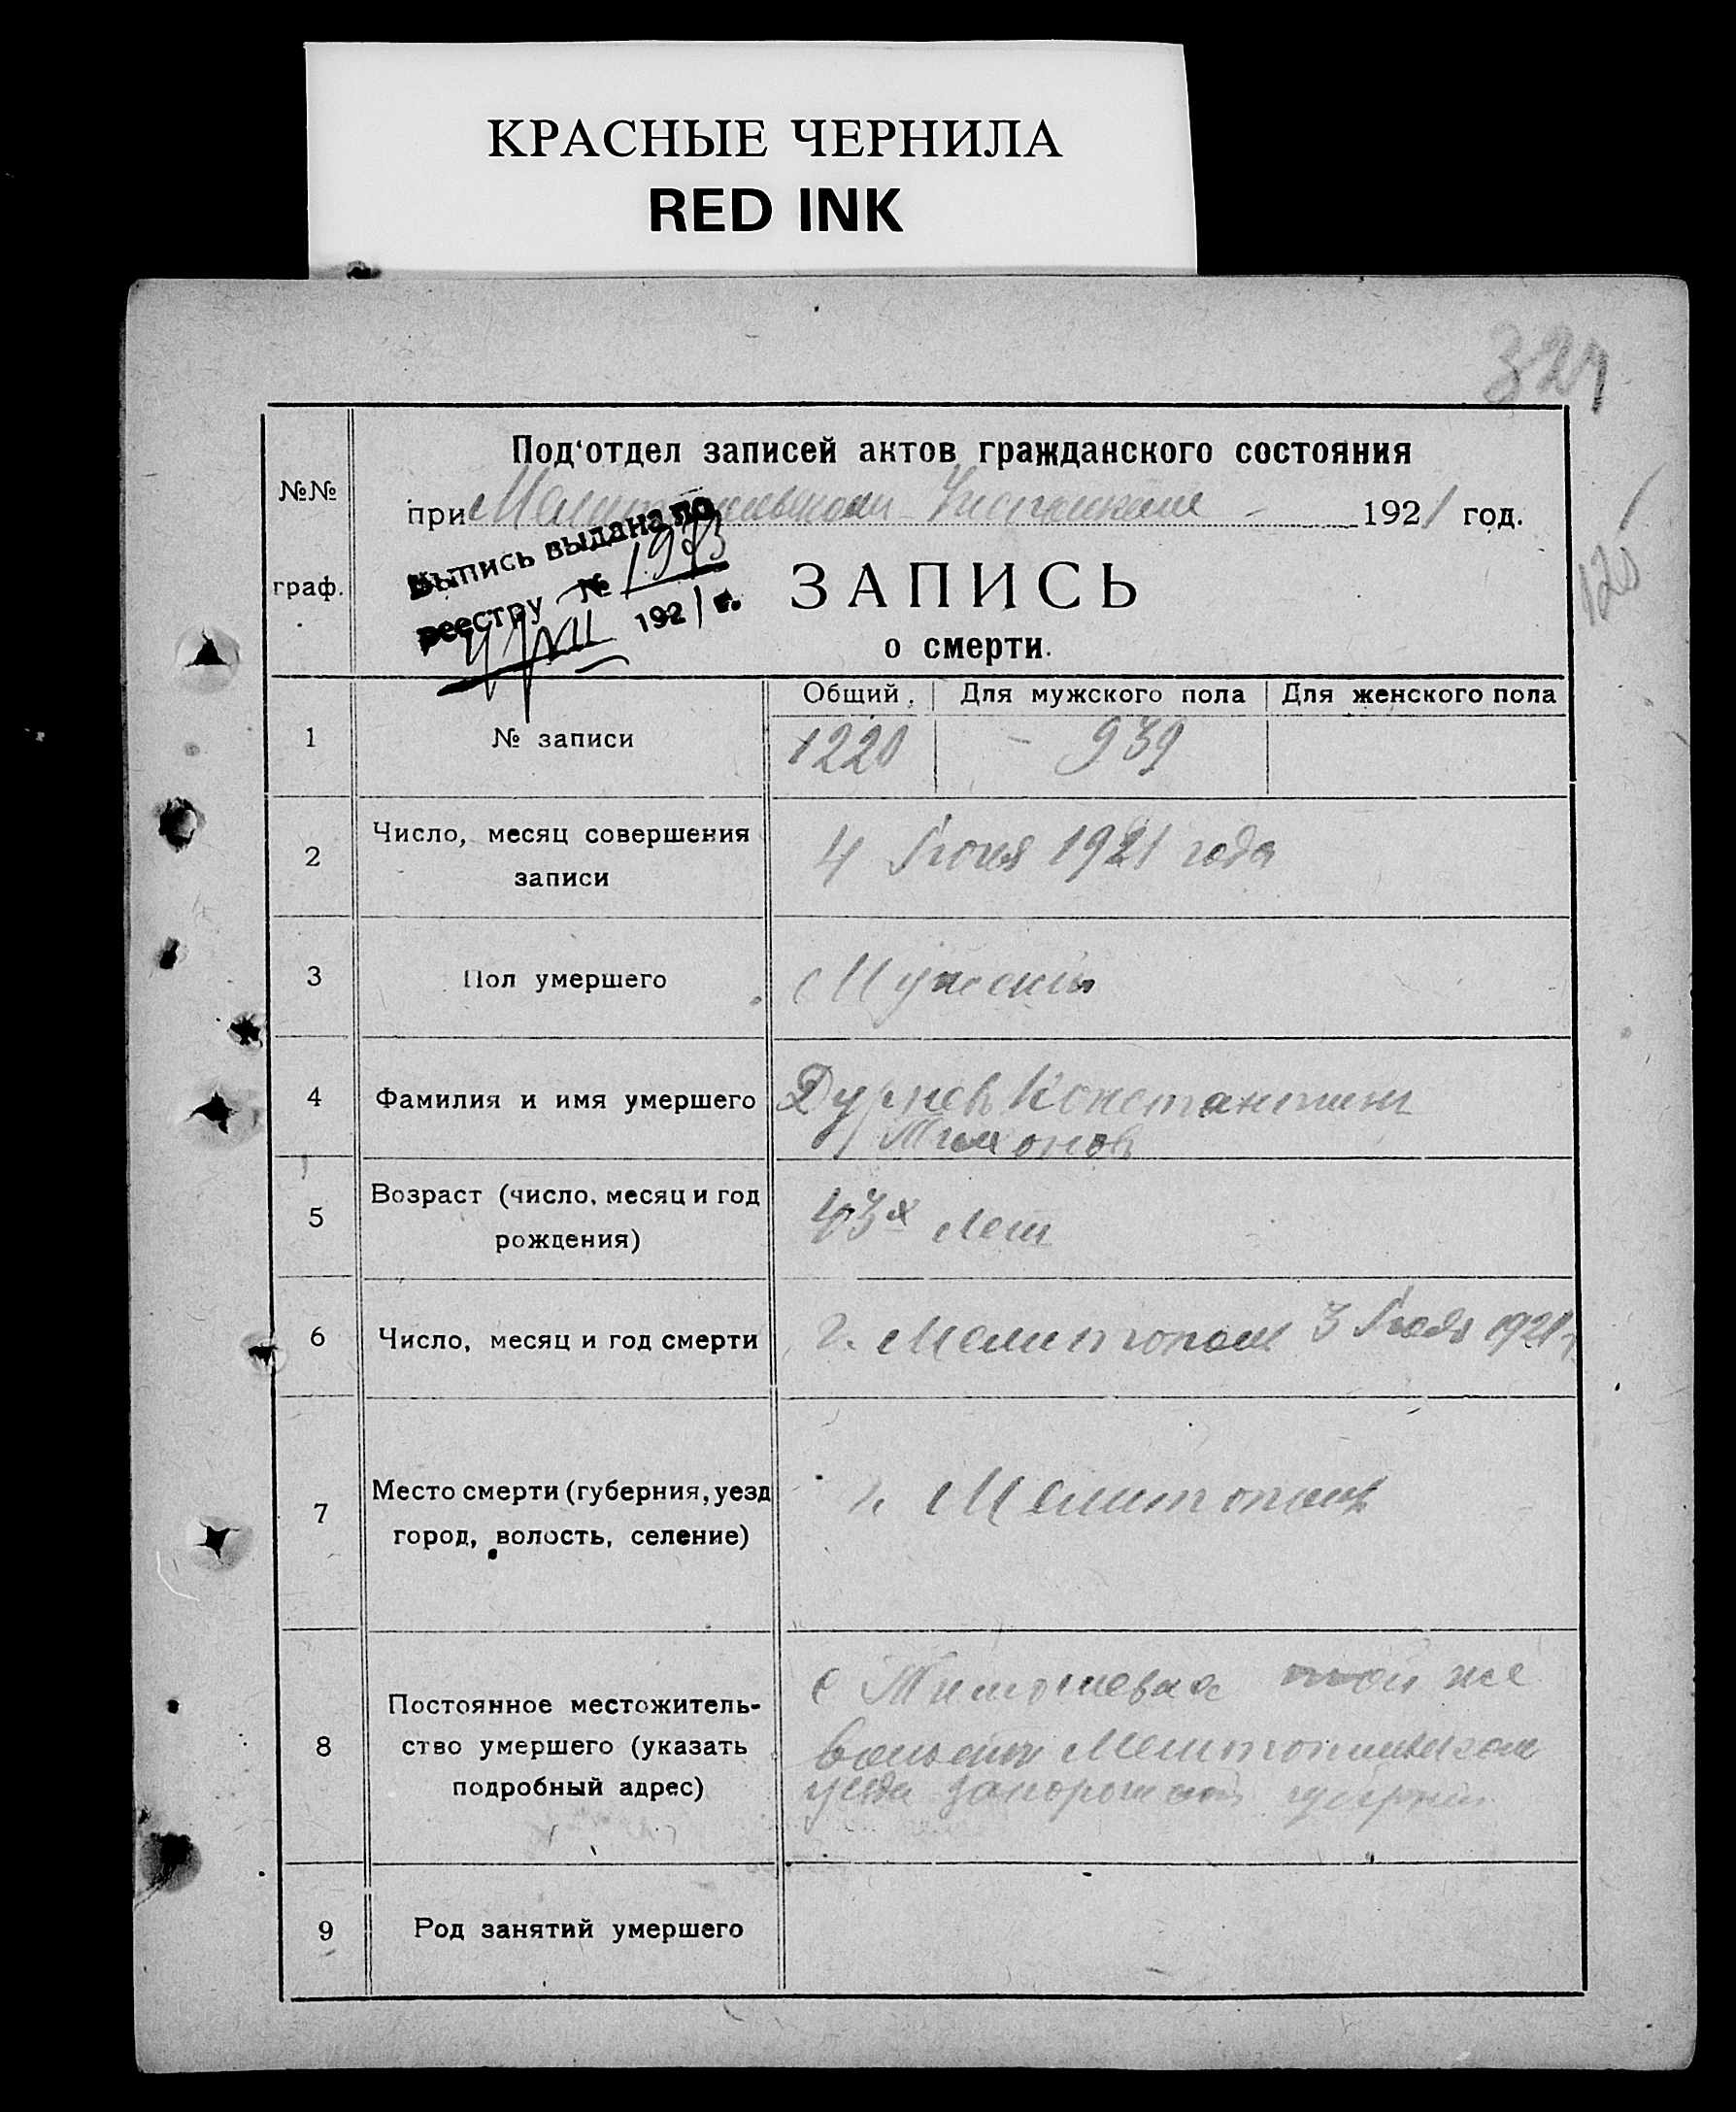 КРАСНЫЕ ЧЕРНИЛА
RED INK
324
Под‘отдел записей актов гражданского состояния
№№
при 1921 год.
Выпись выдана по
реестру №
4/VII 1921 г.
граф.
ЗАПИСЬ
о смерти.
Общий. Для мужского пола Для женского пола
1 № записи 1220 - 939
2 Число, месяц совершения записи 4 1921 года
3 Пол умершего Мужской
4 Фамилия и имя умершего Дурнев Константин
Тимонов
5 Возраст (число, месяц и год рождения) 43х лет
6 Число, месяц и год смерти г. Мелитополь 3 1921 г.
7 Место смерти (губерния, уезд город, волость, селение) г. Мелитополь
8 Постоянное местожитель-
ство умершего (указать
подробный адрес)
с Тимошевка той же
волости Мелитопольского
уезда Запорожской губернии
9 Род занятий умершего